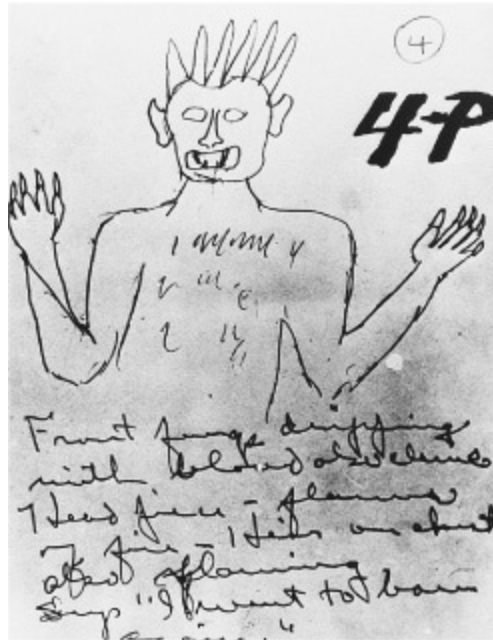 4
4-P
Front fangs dripping
with blood also
Head fire - flames
fire - on chest
also flaming
Says "I want to